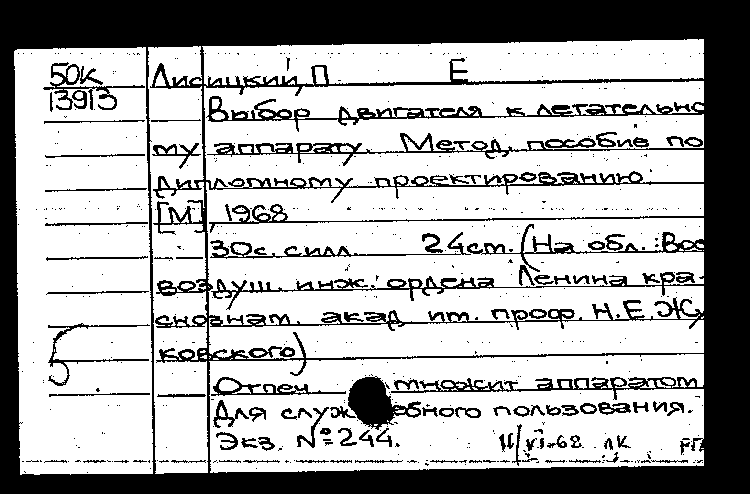 50К
13913
Лисицкий, П Е
Выбор двигателя к летательно
му аппарату. Метод. пособие по
дипломному проектированию.
[М], 1968
30с. силл. 24см. (На обл.: Вое
воздуш. инж. ордена Ленина кра-
снознам. акад им. проф. Н.Е.Жу
ковского)
5
Отпеч. множит аппаратом
Для служебного пользования.
Экз. №244. 11/VI-68 ЛК